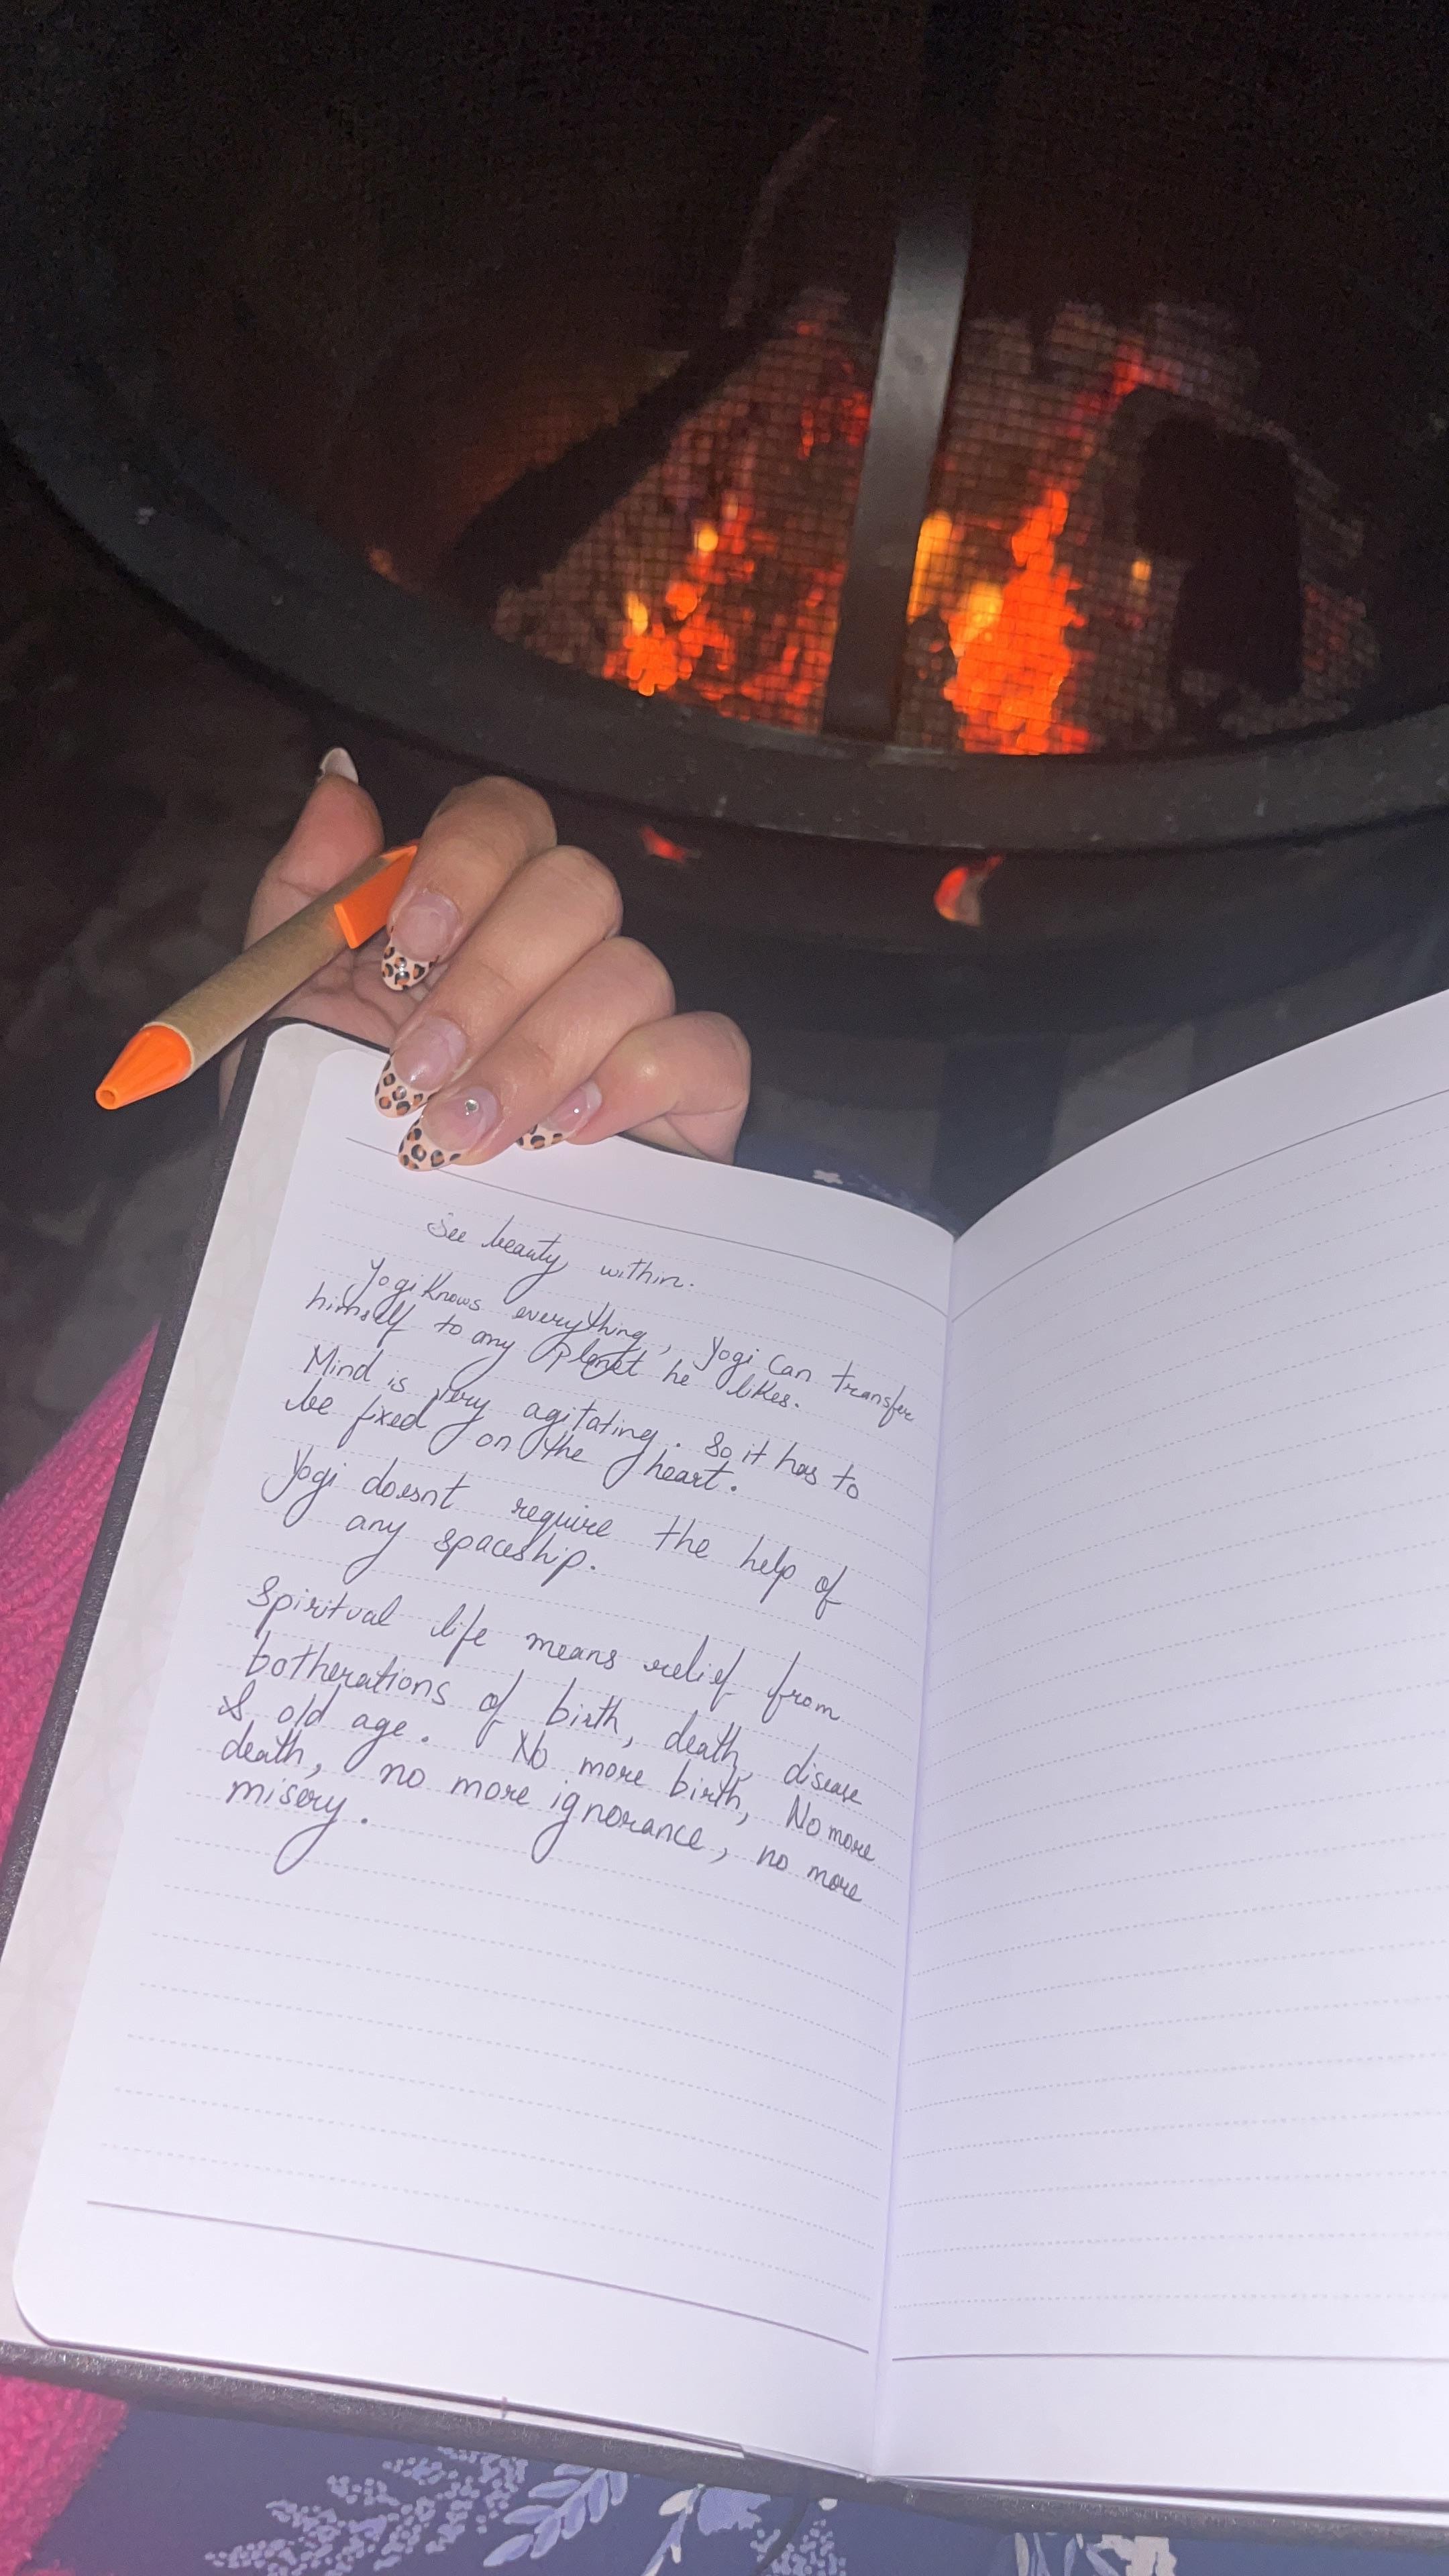 See beauty within.
Yogi Knows everything, Yogi Can transfer
himself to any Planet he likes.
Mind is very agitating. So it has to
be fixed on the heart.
Yogi doesnt require the help of
any spaceship.
Spiritual life means relief from
botherations of birth, death, disease
& old age. No more birth, No more
death, no more ignorance, no more
misery.